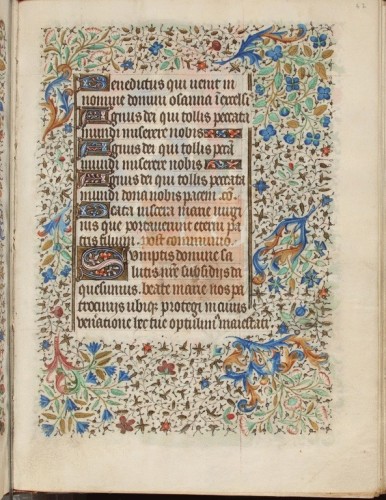 Benedictus qui venit in
nomine domini osanna i excelsi
Agnus dei qui tollis peccata
mundi miserere nobis
Agnus dei qui tollis peca
mundi miserere nobis
Agnus dei qui tollis peccata
mundi dona nobis pacem. co
eata viscera marie virgi
nis que portaverunt eterni pa
tris filium. post communio
Sumptis domine sa
lutis nre subsidiis da
quesumus. beate marie nos pa
trociniis ubiq; protegi in cuius
veneratione hec tue optulim maiestati.